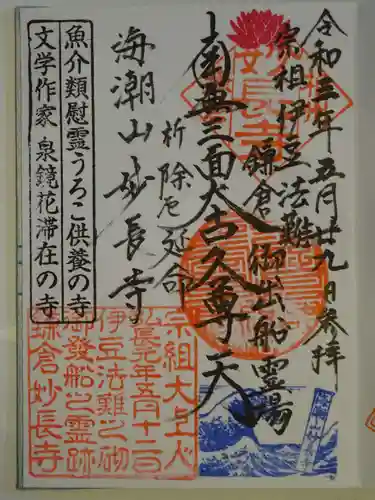 令和三年五月廿九日参拝
宗祖伊豆法難
鎌倉御出船霊場
南無三面大古久尊天
祈除厄延命
海潮山妙長寺
魚介類慰霊うろこ供養の寺
文学作家 泉鏡花滞在の寺
宗祖大上人
弘長元年五月十二日
伊豆法難之砌
御發船之霊跡
鎌倉妙長寺